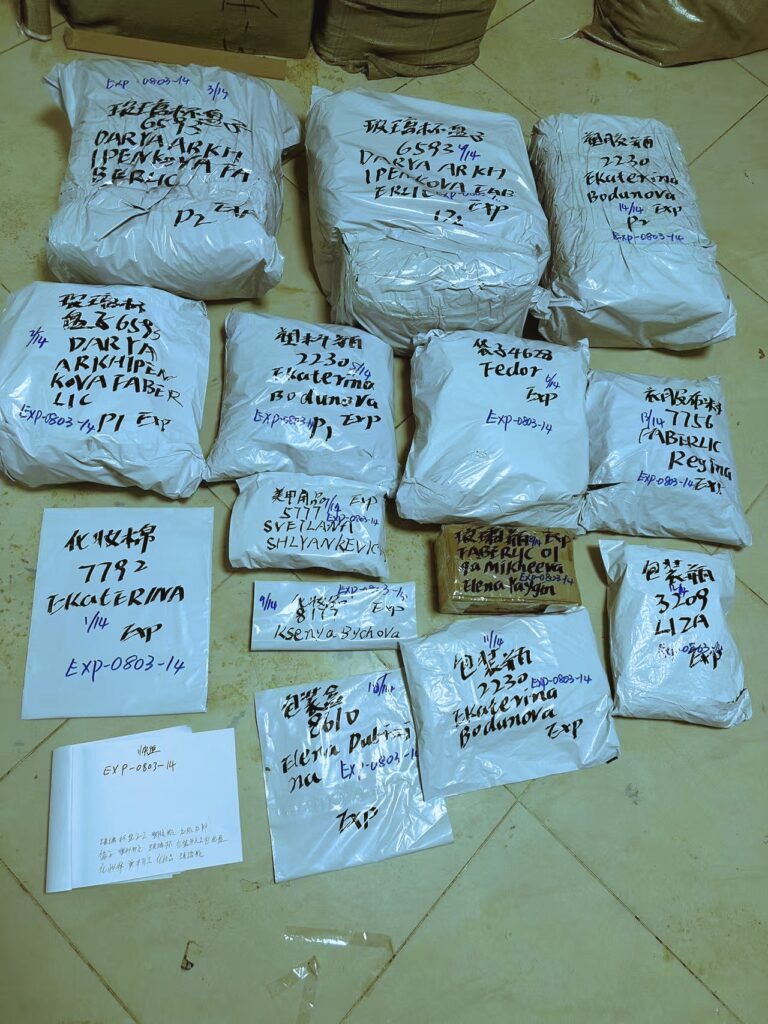 EXP-0803-14 3/14
玻璃杯盘子
6593
DARYA ARKH
IPENKOVA FA
BERLIC
P2 Exp
玻璃杯盘子
6593 4/14
DARYA ARKH
IPENKOVA FAB
ERLIC
Exp
塑胶瓶
2230
Ekaterina
Bodunova
14/14 Exp
P2
EXP-0803-14
玻璃杯
盘子 6593
2/14 DARYA
ARKHIPEN
KOVA FABER
LIC
EXP-0803-14 P1 Exp
塑料瓶
2230 5/14
Ekaterina
Bodunova
P1 Exp
袋子4628
Fedor 6/14
Exp
EXP-0803-14
衣服布料
13/14 7756
FABERLIC
Regina
EXP-0803-14 Exp
化妆棉
7792
EKATERINA
1/14
Exp
EXP-0803-14
美甲用品 7/14 Exp
5777 EXP-0803-14
SVETLANA
SHLYANKEVICH
玻璃瓶 Exp
FABERLIC Ol
ga Mikheeva
EXP-0803-14
Elena Yaygin
包装瓶
3209
LIZA
EXP-0803-14
Exp
9/14 Exp
Ksenya Bychova
包装盒 10/14
8610
Elena Dubini
na EXP-0803-14
Exp
11/14
包装瓶
2230 EXP-0803-14
Ekaterina
Bodunova
Exp
快递
EXP-0803-14